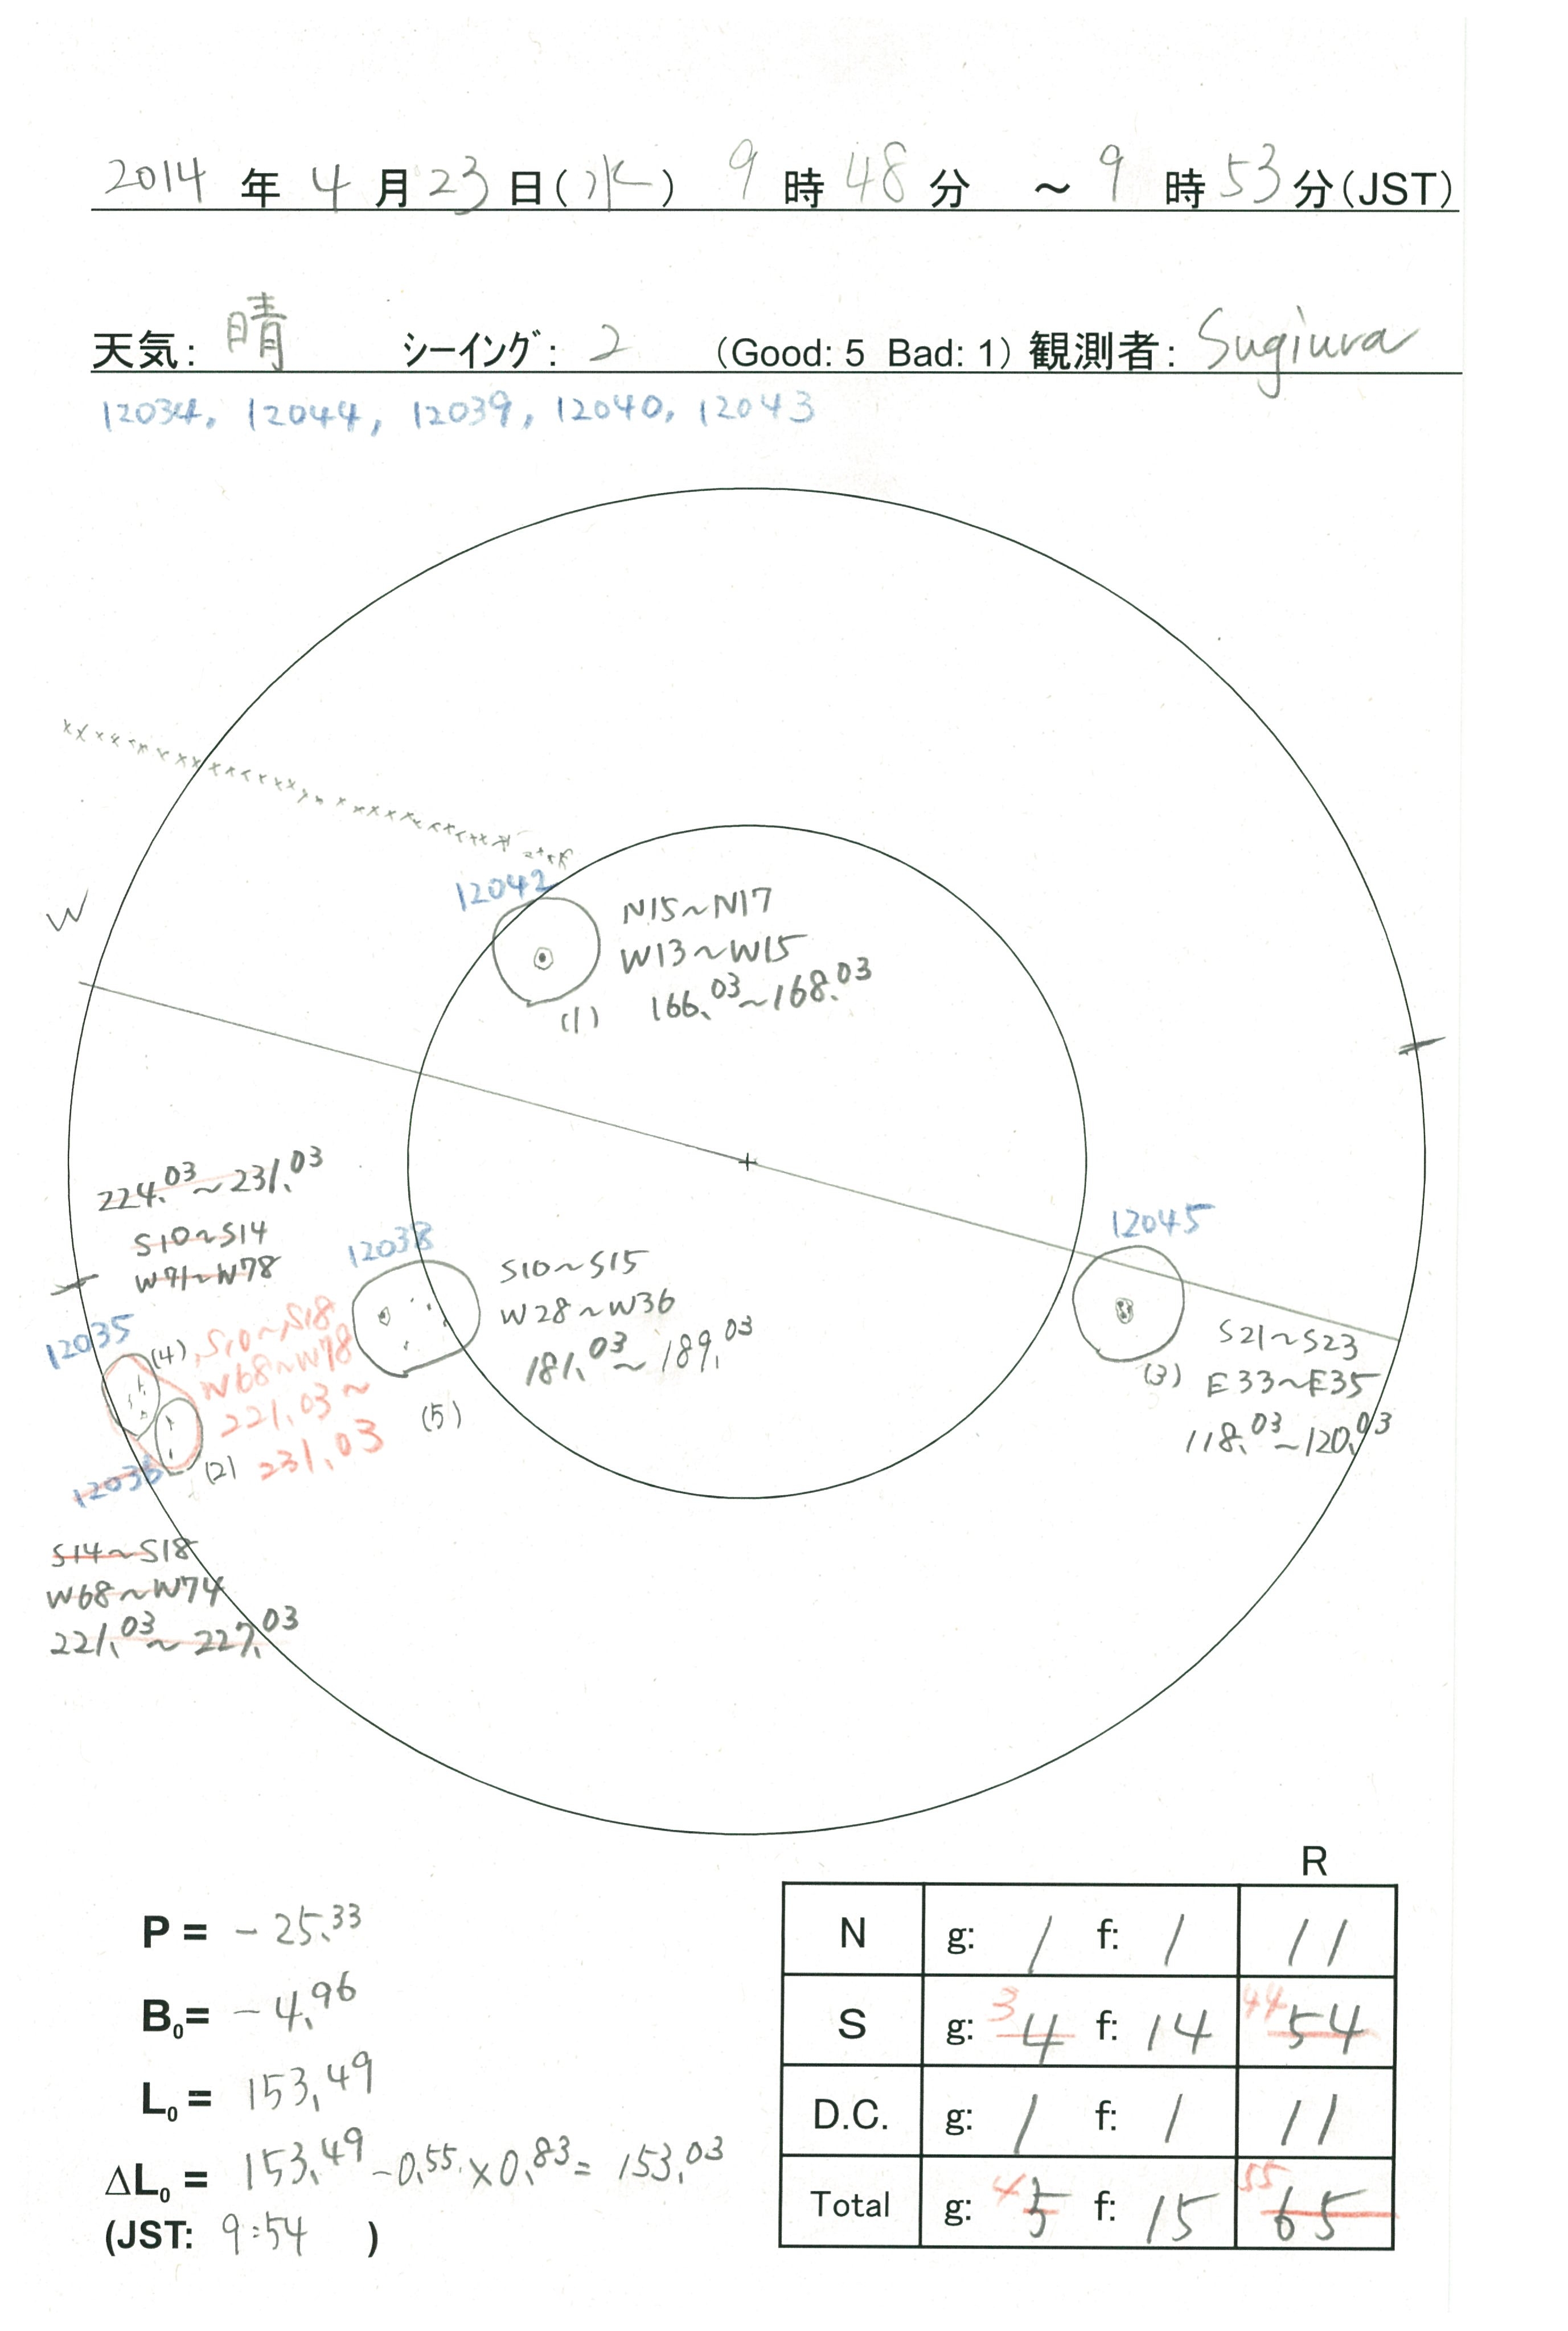 2014 年 4 月 23 日(水) 9 時 48 分 ～ 9 時 53 分(JST)
天気: 晴 シーイング: 2 (Good: 5 Bad: 1) 観測者: Sugiura
12034, 12044, 12039, 12040, 12043
12042
N15~N17
W13~W15
166.03~168.03
(1)
W
224.03~231.03
S10~S14
W71~W78
12035
(4)
S10~S18
W68~W78
221.03~
231.03
(2)
S14~S18
W68~W74
221.03~227.03
12038
S10~S15
W28~W36
181.03~189.03
(5)
12045
S21~S23
(3) E33~E35
118.03~120.03
P = -25.33
B0= -4.96
L0 = 153.49
ΔL0 = 153.49 -0.55 × 0.83 = 153.03
(JST: 9:54 )
R
N g: 1 f: 1 11
S g: 3 4 f: 14 44 54
D.C. g: 1 f: 1 11
Total g: 4 5 f: 15 55 65